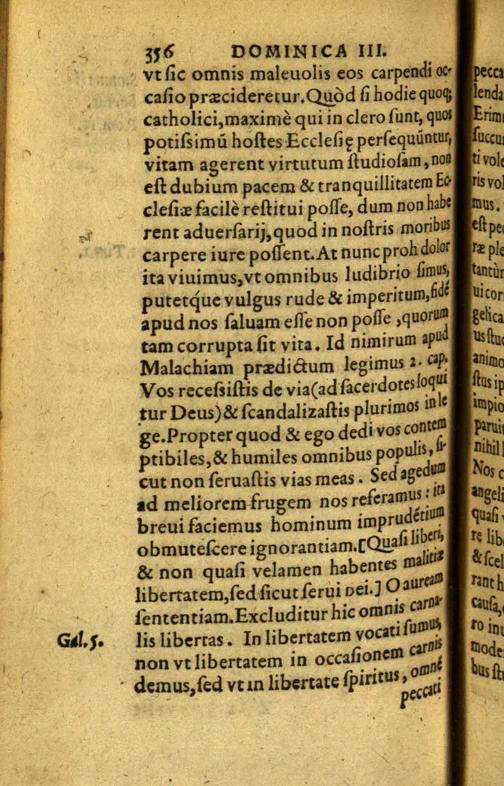 356 DOMINICA III.
vt sic omnis maleuolis eos carpendi oc-
casio præcideretur. Quòd si hodie quoq;
catholici, maximè qui in clero sunt, quos
potissimũ hostes Ecclesię persequũntur,
vitam agerent virtutum studiosam, non
est dubium pacem & tranquillitatem Ec-
clesiæ facilè restitui posse, dum non habe
rent aduersarij, quod in nostris moribus
carpere iure possent. At nunc proh dolor
ita viuimus, vt omnibus ludibrio simus,
putetq́ue vulgus rude & imperitum, fidẽ
apud nos saluam esse non posse, quorum
tam corrupta sit vita. Id nimirum apud
Malachiam prædictum legimus 2. cap.
Vos recessistis de via (ad sacerdotes loqui
tur Deus) & scandalizastis plurimos in le
ge. Propter quod & ego dedi vos contem
ptibiles, & humiles omnibus populis, si-
cut non seruastis vias meas. Sed agedum
ad meliorem frugem nos referamus: ita
breui faciemus hominum imprudẽtium
obmutescere ignorantiam. [Quasi liberi,
& non quasi velamen habentes malitiæ
libertatem, sed sicut serui Dei.] O auream
sententiam. Excluditur hic omnis carna-
Gal. 5. lis libertas. In libertatem vocati sumus,
non vt libertatem in occasionem carnis
demus, sed vt in libertate spiritus, omnẽ
peccati
pecca
lenda
Erim
succu
ti vole
ris vol
mus.
est pec
ræ ple
tantùr
ui cor
gelica
us stuc
animo
stus ip
impio
paruit
nihil l
Nos c
angeli
quasi v
re lib
& scel
rant h
causa,
ro int
mode
bus st